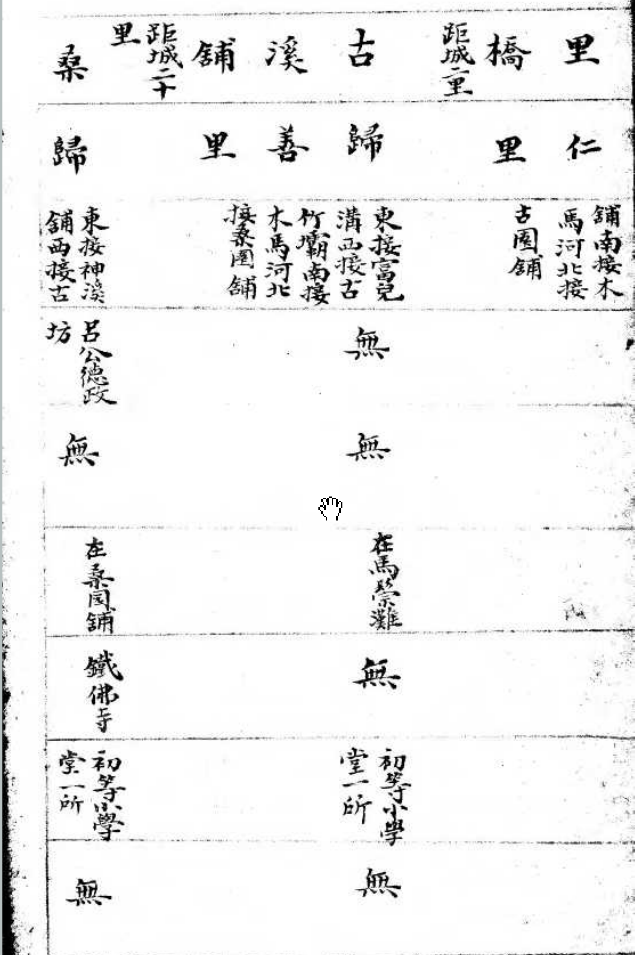 里
橋
距城里
古
溪
舖
距城二十
里
桑
仁
里
歸
善
里
歸
舖南接木
馬河北接
古園舖
東接富兒
溝西接古
竹壩南接
木馬河北
接桑園舖
東接神溪
舖西接古
無
呂公德政
坊
無
無
在馬灘
在桑园舖
無
鐵佛寺
初等小學
堂一所
初等小學
堂一所
無
無